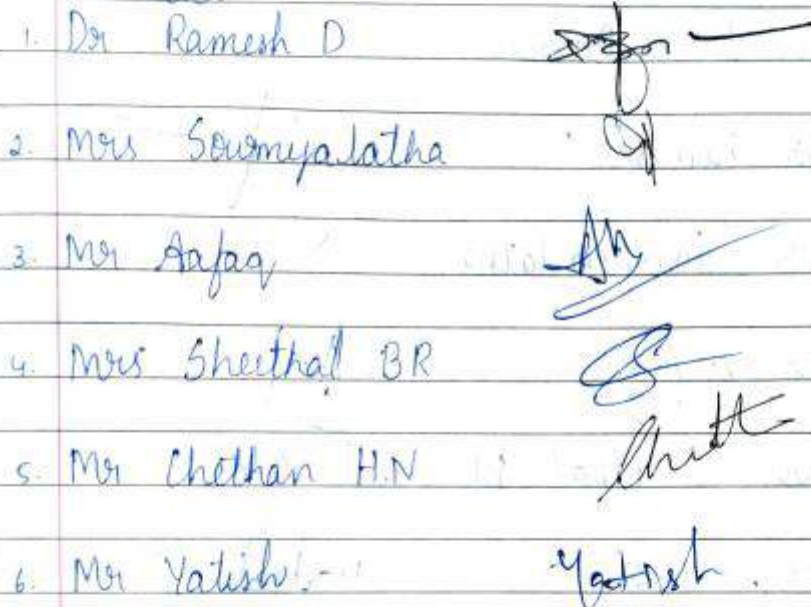 1. Dr Ramesh D
2. Mrs Sowmyalatha
3. Mr Aafaq
4. Mrs Sheethal BR
5. Mr Chethan H.N
6. Mr Yatish Yatish.